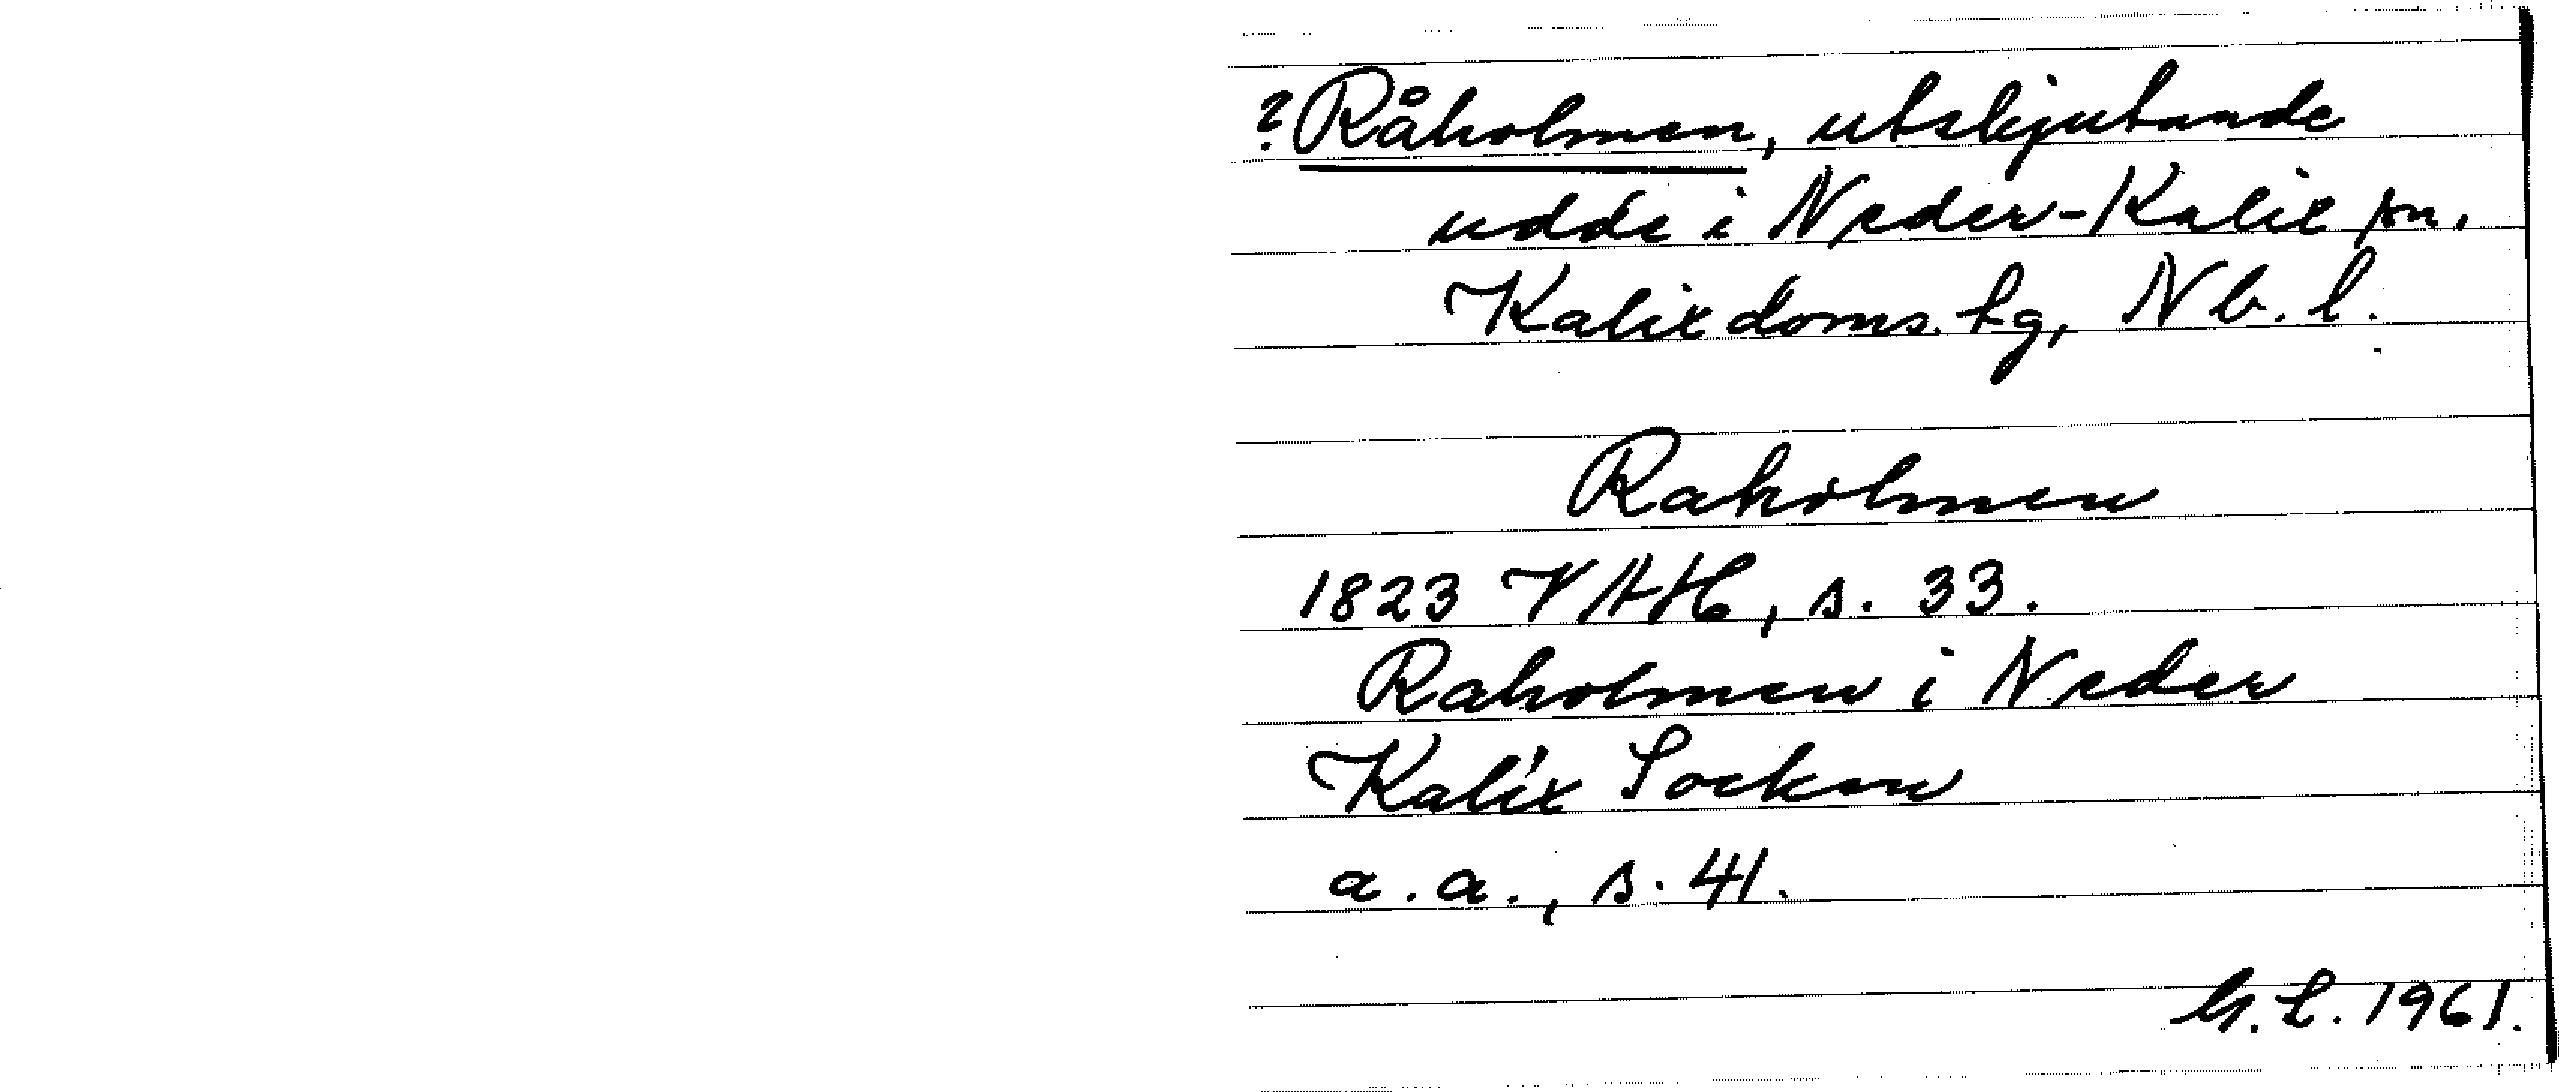 ? Råholmen, utskjutande
udde i Neder-Kalix sn.
Kalix doms. hg, Nb. l.
Raholmen
1823 VAH, s. 33.
Raholmen i Neder
Kalix Socken
a. a., s. 41.
G. L. 1961.